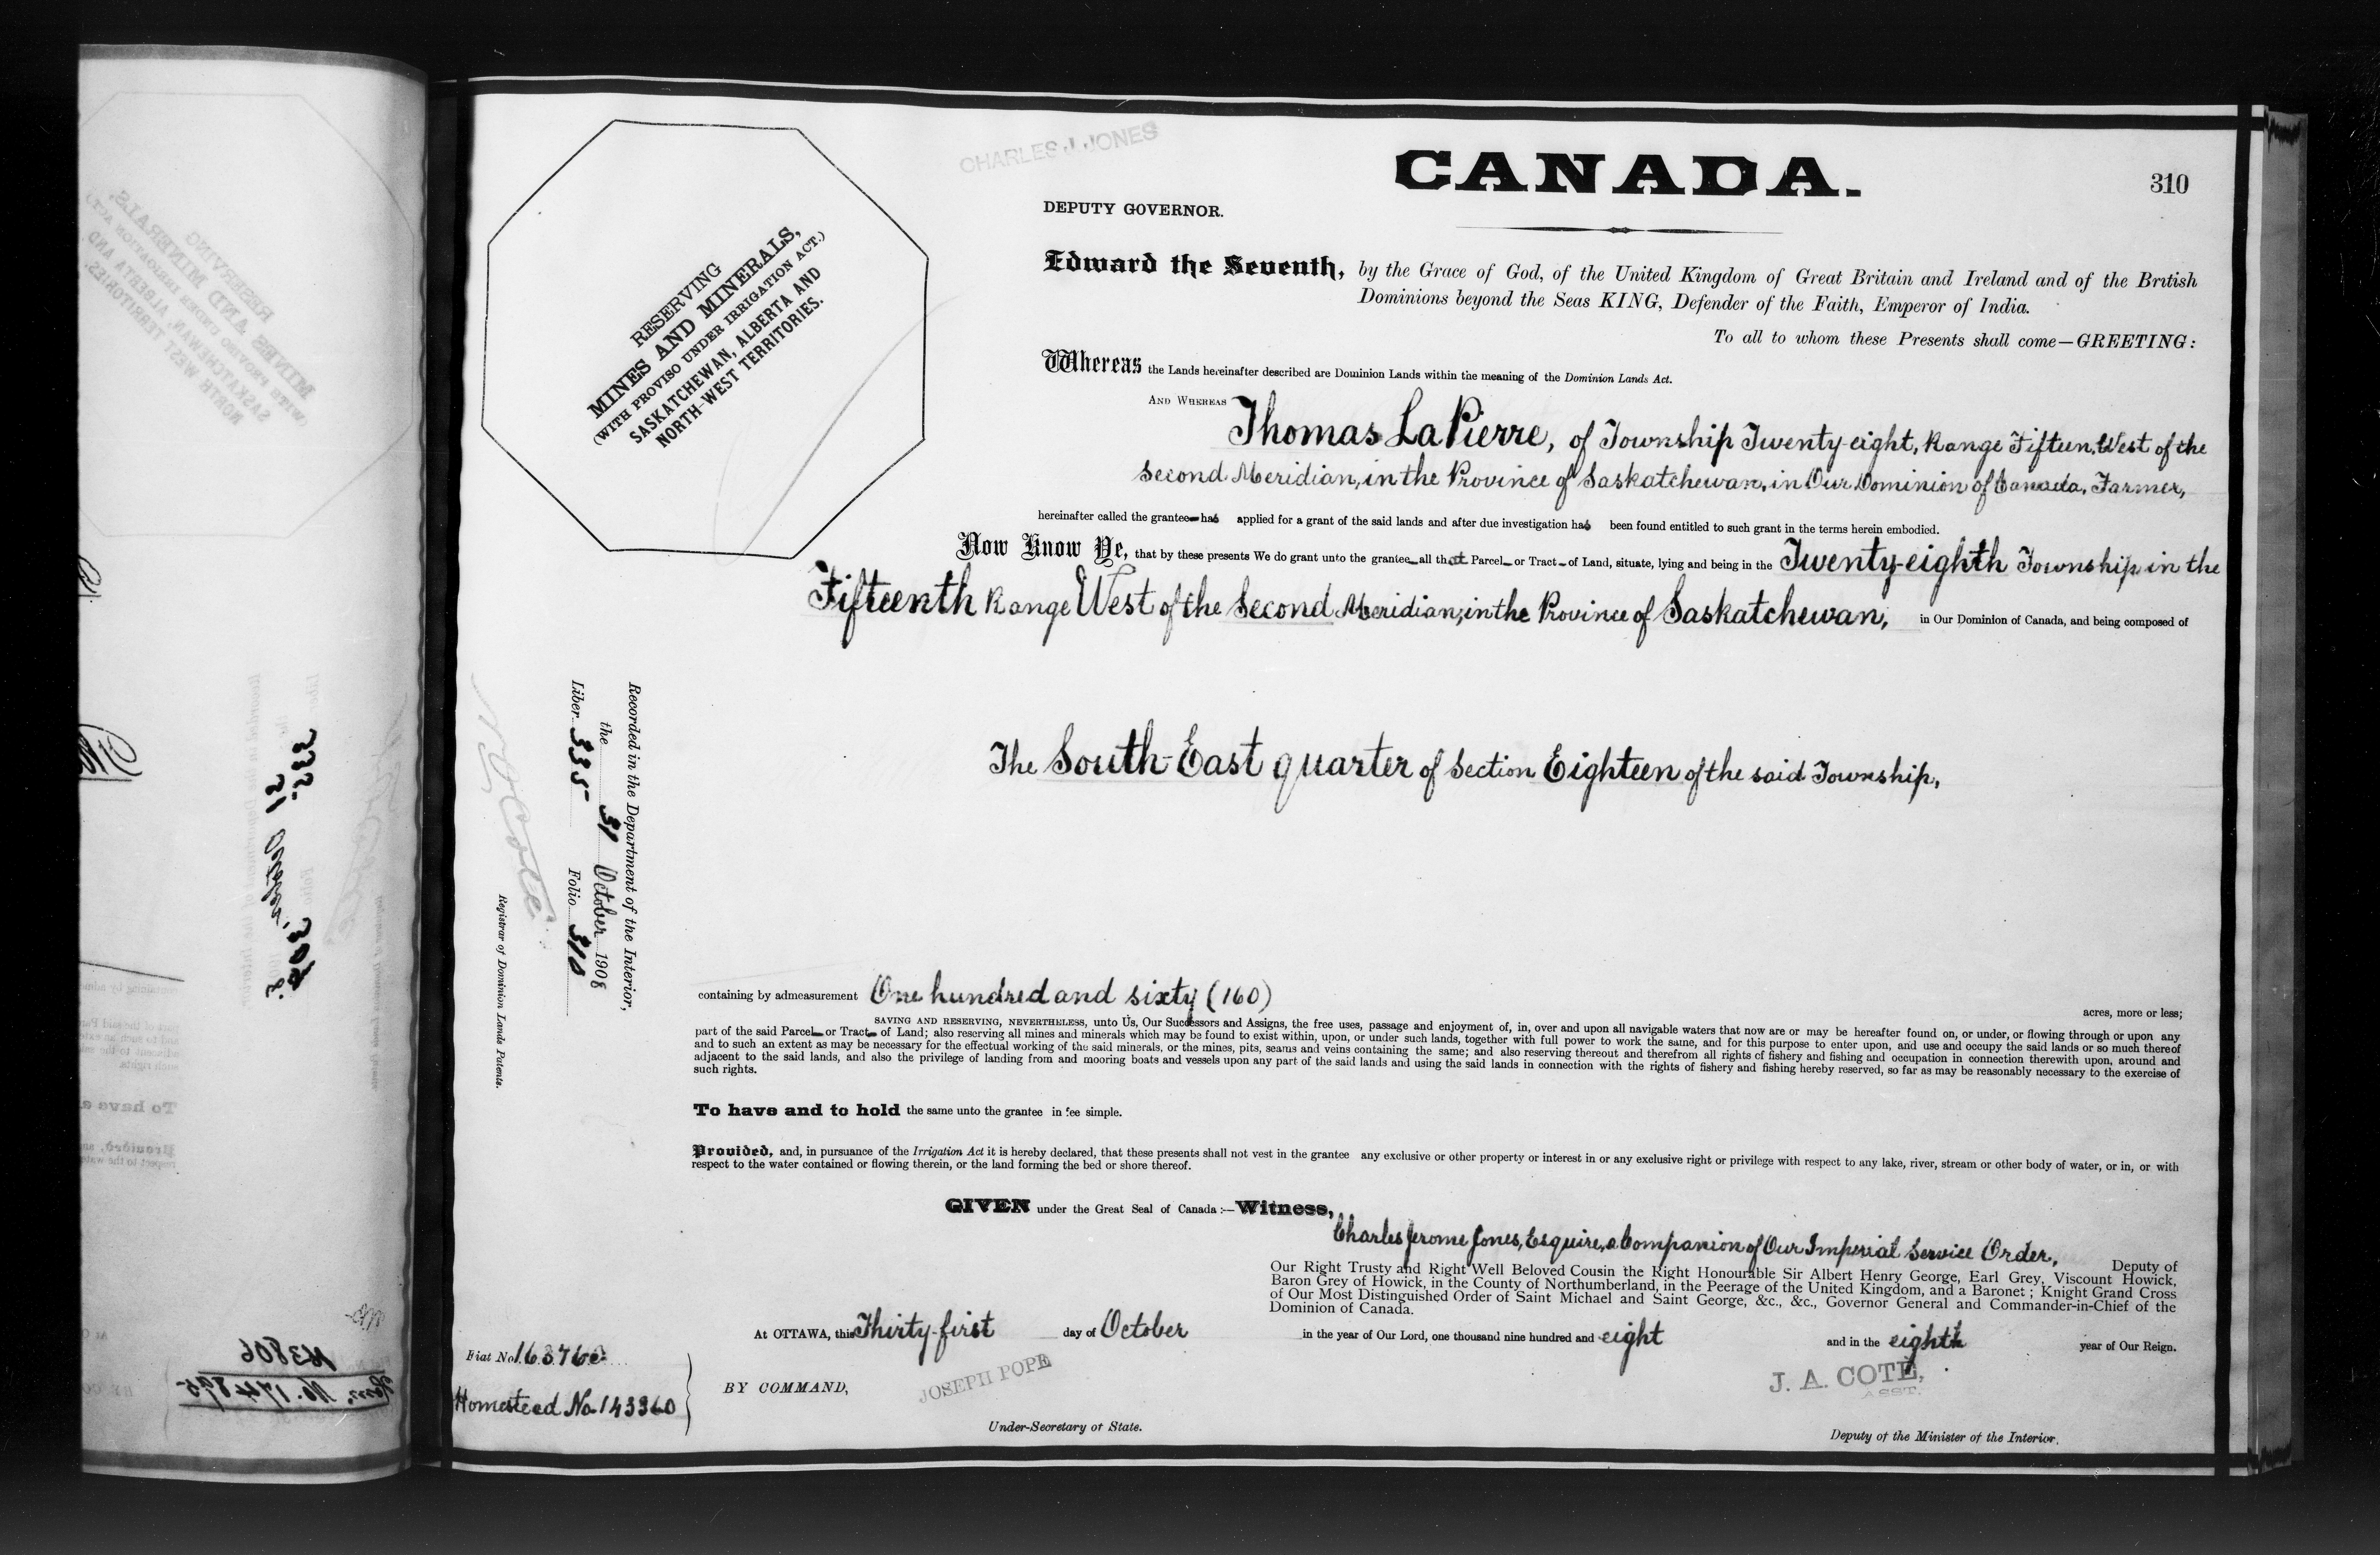 CHARLES J. JONES
CANADA.
310
DEPUTY GOVERNOR.
RESERVING
MINES AND MINERALS,
(WITH PROVISO UNDER IRRIGATION ACT.)
SASKATCHEWAN, ALBERTA AND
NORTH-WEST TERRITORIES.
Edward the Seventh, by the Grace of God, of the United Kingdom of Great Britain and Ireland and of the British
Dominions beyond the Seas KING, Defender of the Faith, Emperor of India.
To all to whom these Presents shall come—GREETING:
Whereas the Lands hereinafter described are Dominion Lands within the meaning of the Dominion Lands Act.
AND WHEREAS Thomas LaPierre, of Township Twenty-eight, Range Fifteen, West of the
Second Meridian, in the Province of Saskatchewan, in Our Dominion of Canada, Farmer,
hereinafter called the grantee has applied for a grant of the said lands and after due investigation has been found entitled to such grant in the terms herein embodied.
Now Know Ye, that by these presents We do grant unto the grantee all that Parcel or Tract of Land, situate, lying and being in the Twenty-eighth Township in the
Fifteenth Range West of the Second Meridian, in the Province of Saskatchewan, in Our Dominion of Canada, and being composed of
The South-East quarter of Section Eighteen of the said Township,
Recorded in the Department of the Interior,
the 31 October 1908
Liber 335 Folio 310
N O Coté
Registrar of Dominion Lands Patents.
containing by admeasurement One hundred and sixty (160) acres, more or less;
SAVING AND RESERVING, NEVERTHELESS, unto Us, Our Successors and Assigns, the free uses, passage and enjoyment of, in, over and upon all navigable waters that now are or may be hereafter found on, or under, or flowing through or upon any
part of the said Parcel or Tract of Land; also reserving all mines and minerals which may be found to exist within, upon, or under such lands, together with full power to work the same, and for this purpose to enter upon, and use and occupy the said lands or so much thereof
and to such an extent as may be necessary for the effectual working of the said minerals, or the mines, pits, seams and veins containing the same; and also reserving thereout and therefrom all rights of fishery and fishing and occupation in connection therewith upon, around and
adjacent to the said lands, and also the privilege of landing from and mooring boats and vessels upon any part of the said lands and using the said lands in connection with the rights of fishery and fishing hereby reserved, so far as may be reasonably necessary to the exercise of
such rights.
To have and to hold the same unto the grantee in fee simple.
Provided, and, in pursuance of the Irrigation Act it is hereby declared, that these presents shall not vest in the grantee any exclusive or other property or interest in or any exclusive right or privilege with respect to any lake, river, stream or other body of water, or in, or with
respect to the water contained or flowing therein, or the land forming the bed or shore thereof.
GIVEN under the Great Seal of Canada:—Witness,
Charles Jerome Jones, Esquire, a Companion of Our Imperial Service Order, Deputy of
Our Right Trusty and Right Well Beloved Cousin the Right Honourable Sir Albert Henry George, Earl Grey, Viscount Howick,
Baron Grey of Howick, in the County of Northumberland, in the Peerage of the United Kingdom, and a Baronet; Knight Grand Cross
of Our Most Distinguished Order of Saint Michael and Saint George, &c., &c., Governor General and Commander-in-Chief of the
Dominion of Canada.
At OTTAWA, this Thirty-first day of October in the year of Our Lord, one thousand nine hundred and eight and in the eighth year of Our Reign.
Fiat No.
Homestead No. 143360
BY COMMAND,
JOSEPH POPE
Under-Secretary of State.
J. A. COTÉ,
ASST.
Deputy of the Minister of the Interior.